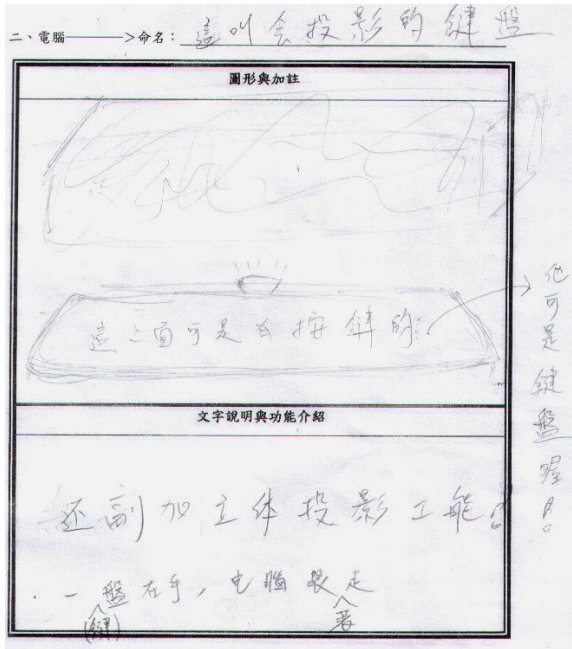 二、電腦————>命名：這叫会投影的鍵盤
圖形與加註
這上面可是有按鍵的!
他可是鍵盤喔!
文字說明與功能介紹
还副加立体投影工能!
·一盤在手，电腦跟走
(鍵)
著